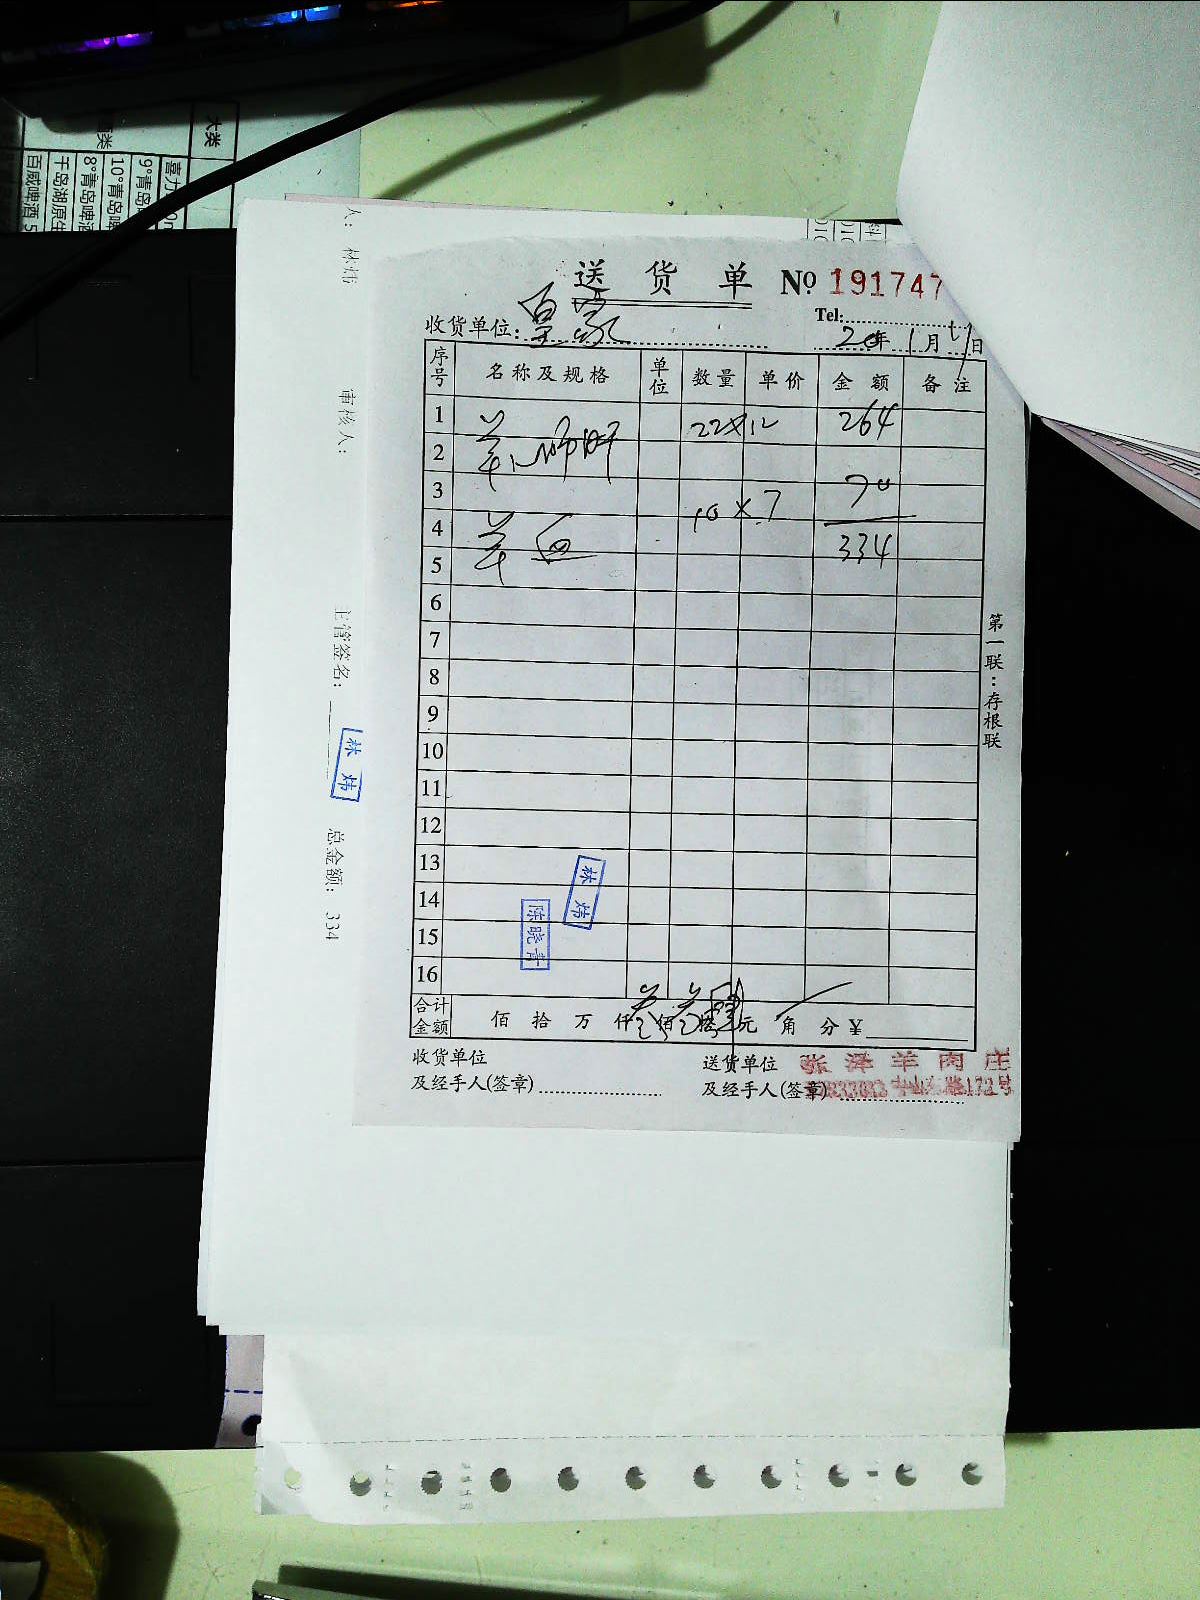 大类
喜力
9°青岛
10°青岛啤
8°青岛啤酒
千岛湖原生
百威啤酒 5
人： 林炜
审核人：
主管签名：
林炜
总金额： 334
送货单 № 191747
Tel:
收货单位：皇家
20年1月11日
序号 名称及规格 单位 数量 单价 金额 备注
1 22×12 264
2
3 10×7 70
4 羊血
5 334
6
7
8
9
10
11
12
13
14
15
16
林炜
陈晓青
合计金额 佰 拾 万 仟 佰 拾 元 角 分 ¥
叁 叁 肆
收货单位 送货单位 张泽羊肉庄
及经手人(签章) 及经手人(签章)
172号
第一联：存根联